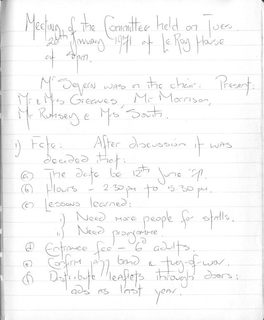 Meeting of the Committee held on Tues.
26th January 1971 at Le Roy House
at 8pm.
Mr Segern was in the chair. Present:
Mr & Mrs Greaves, Mr Morrison,
Mr Rumsey & Mrs South.
1) Fete: After discussion it was
decided that:
(a) The date be 12th June '71.
(b) Hours - 2.30pm to 5.30pm.
(c) Lessons learned:
i) Need more people for stalls.
ii) Need programme.
(d) Entrance fee - 6d adults.
(e) Confirm jazz band & tug-of-war.
(f) Distribute leaflets through doors:
ads as last year.